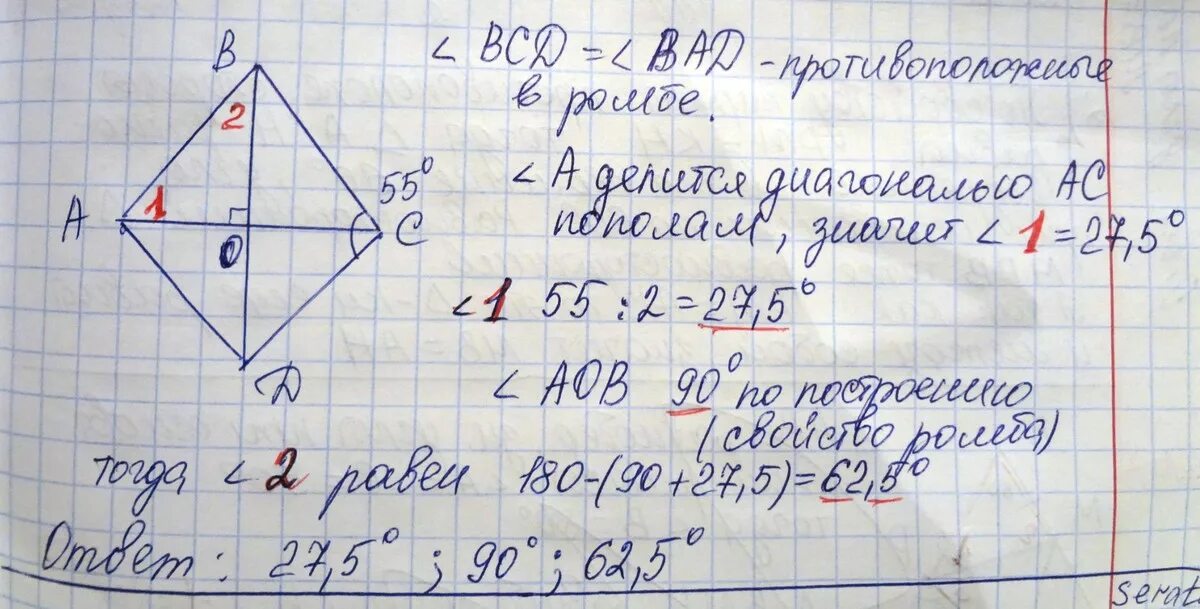 B
∠ BCD = ∠ BAD - противоположные
в ромбе.
2
55°
∠ А делится диагональю АС
A 1 O C
пополам, значит ∠ 1 = 27,5°
∠1 55 : 2 = 27,5°
D
∠ AOB 90° по построению
(свойство ромба)
тогда ∠ 2 равен 180-(90+27,5)=62,5°
Ответ: 27,5° ; 90° ; 62,5°